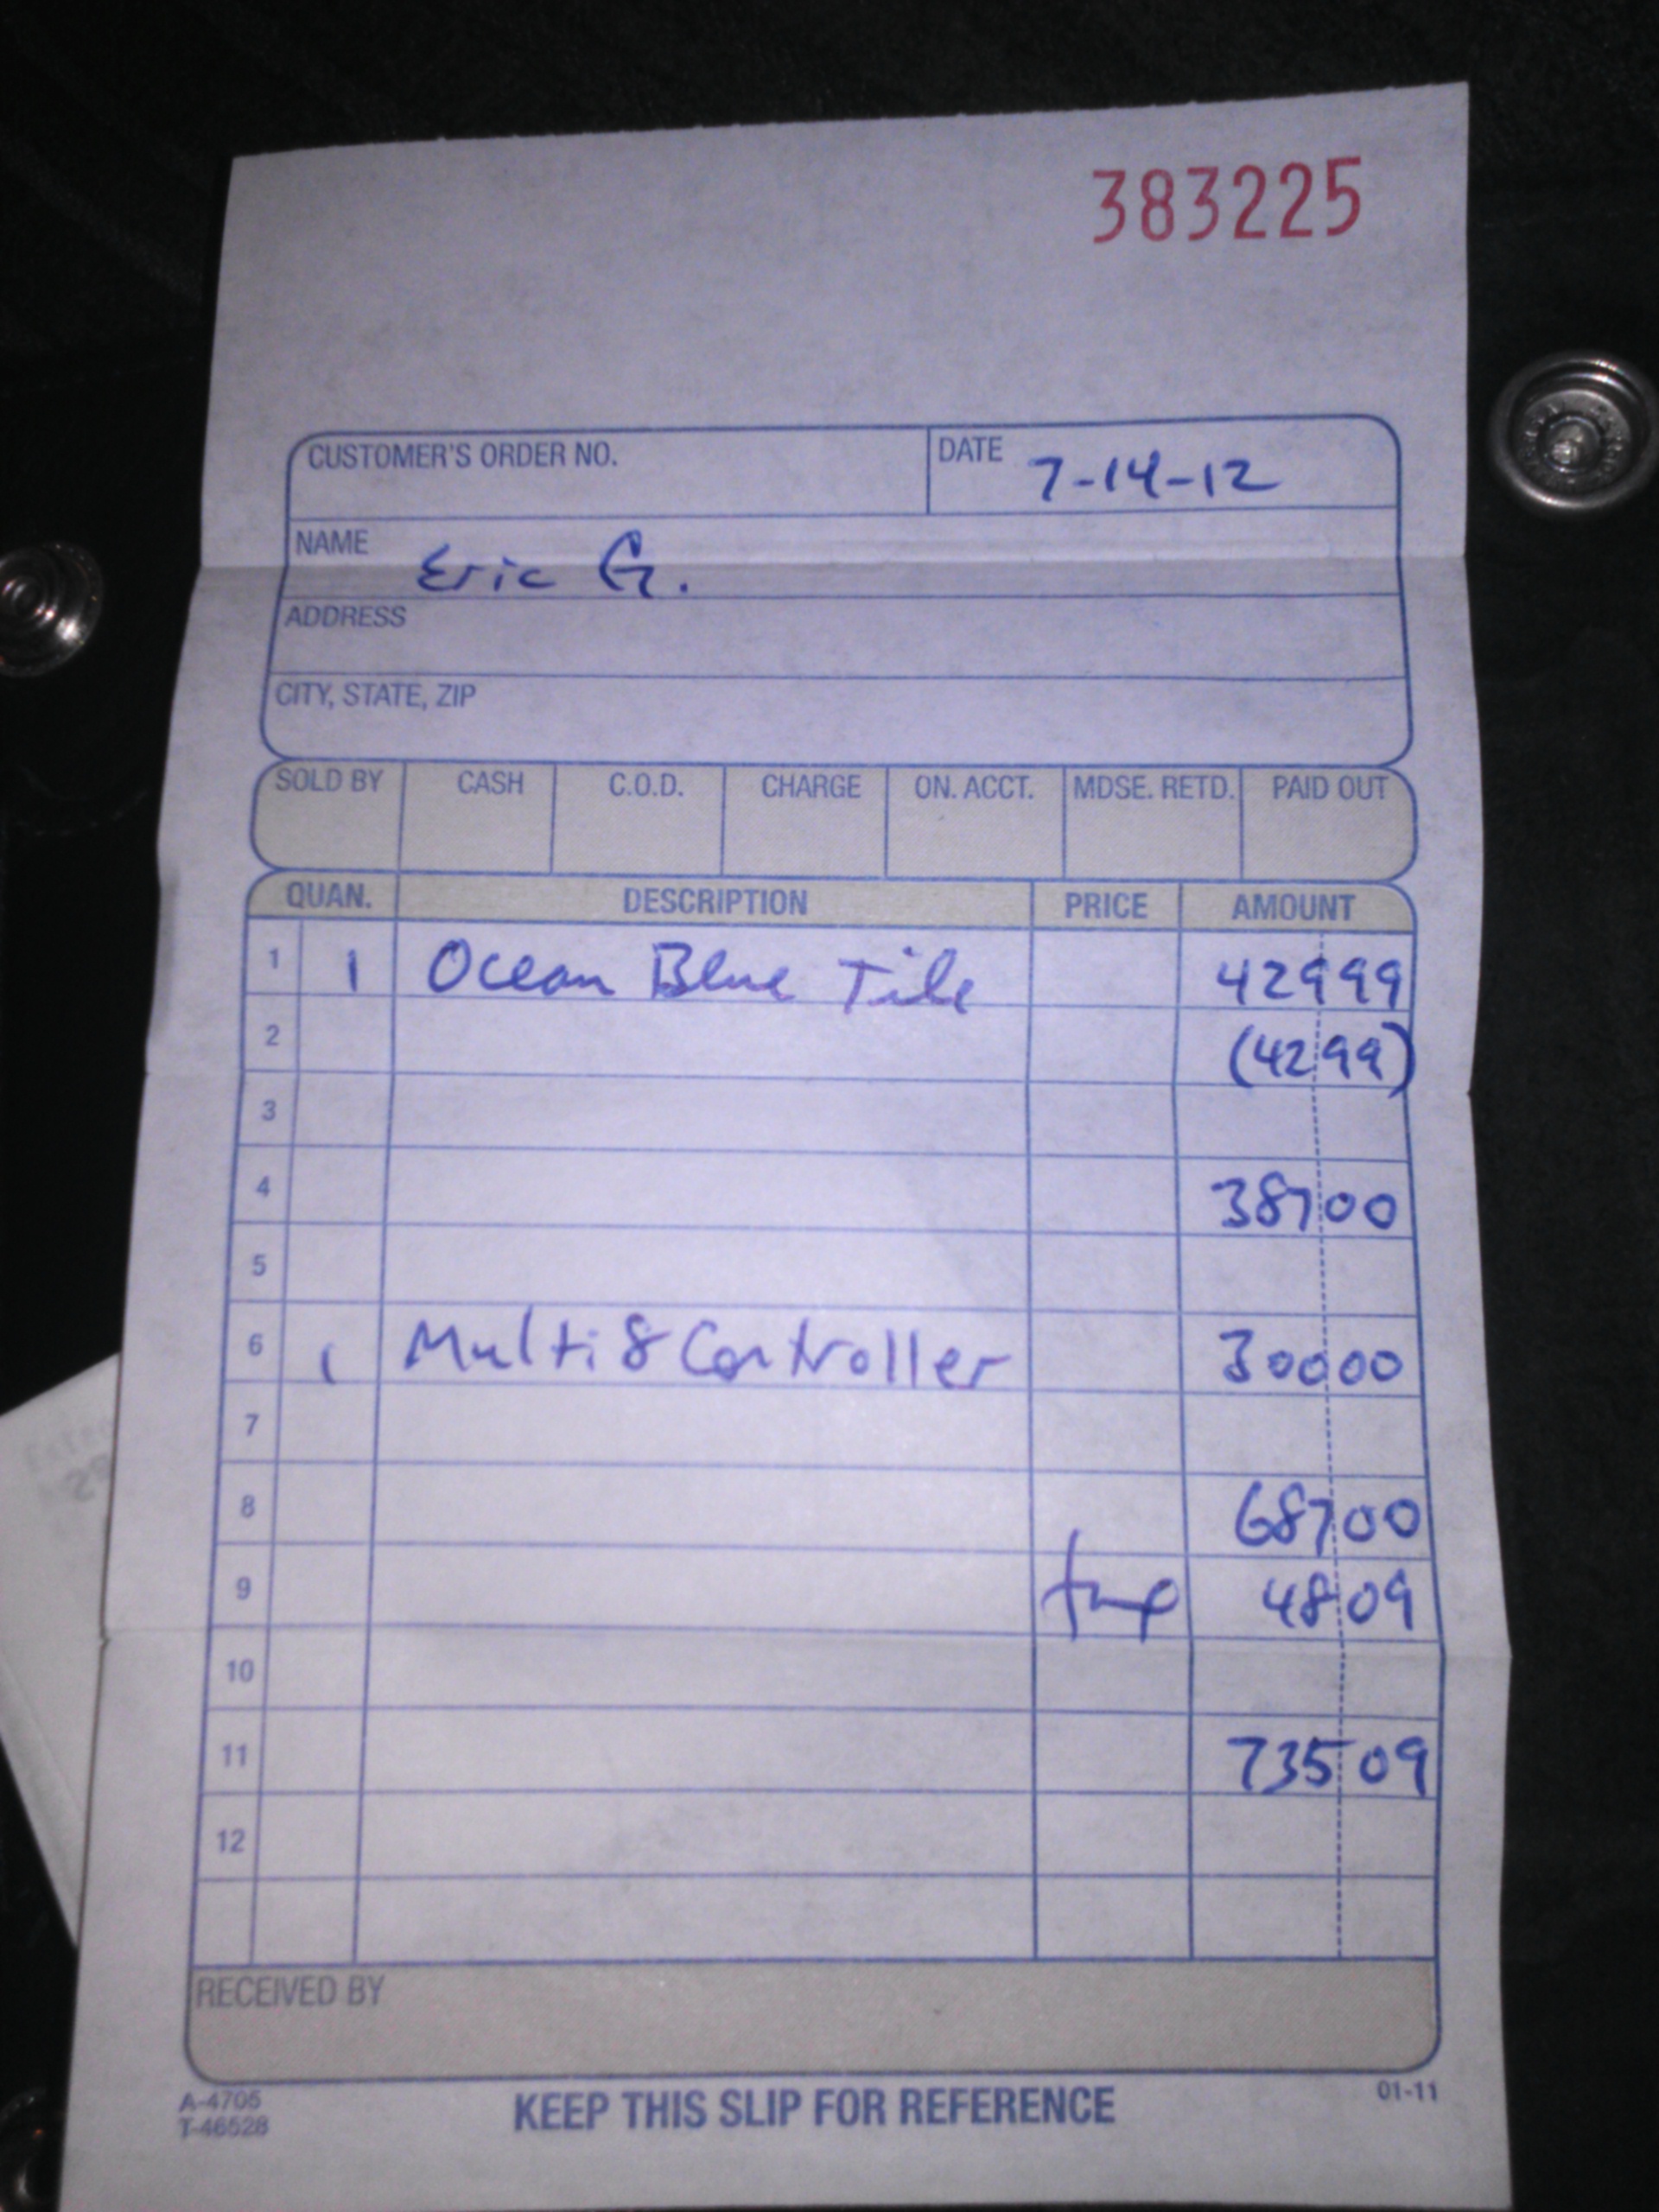 383225
CUSTOMER'S ORDER NO. DATE 7-14-12
NAME Eric G.
ADDRESS
CITY, STATE, ZIP
SOLD BY CASH C.O.D. CHARGE ON. ACCT. MDSE. RETD. PAID OUT
QUAN. DESCRIPTION PRICE AMOUNT
1 1 Ocean Blue Tile 42999
2 (4299)
3
4 38700
5
6 1 Multi 8 Controller 30000
7
8 68700
9 4809
10
11 73509
12
RECEIVED BY
A-4705
T-46528
KEEP THIS SLIP FOR REFERENCE
01-11